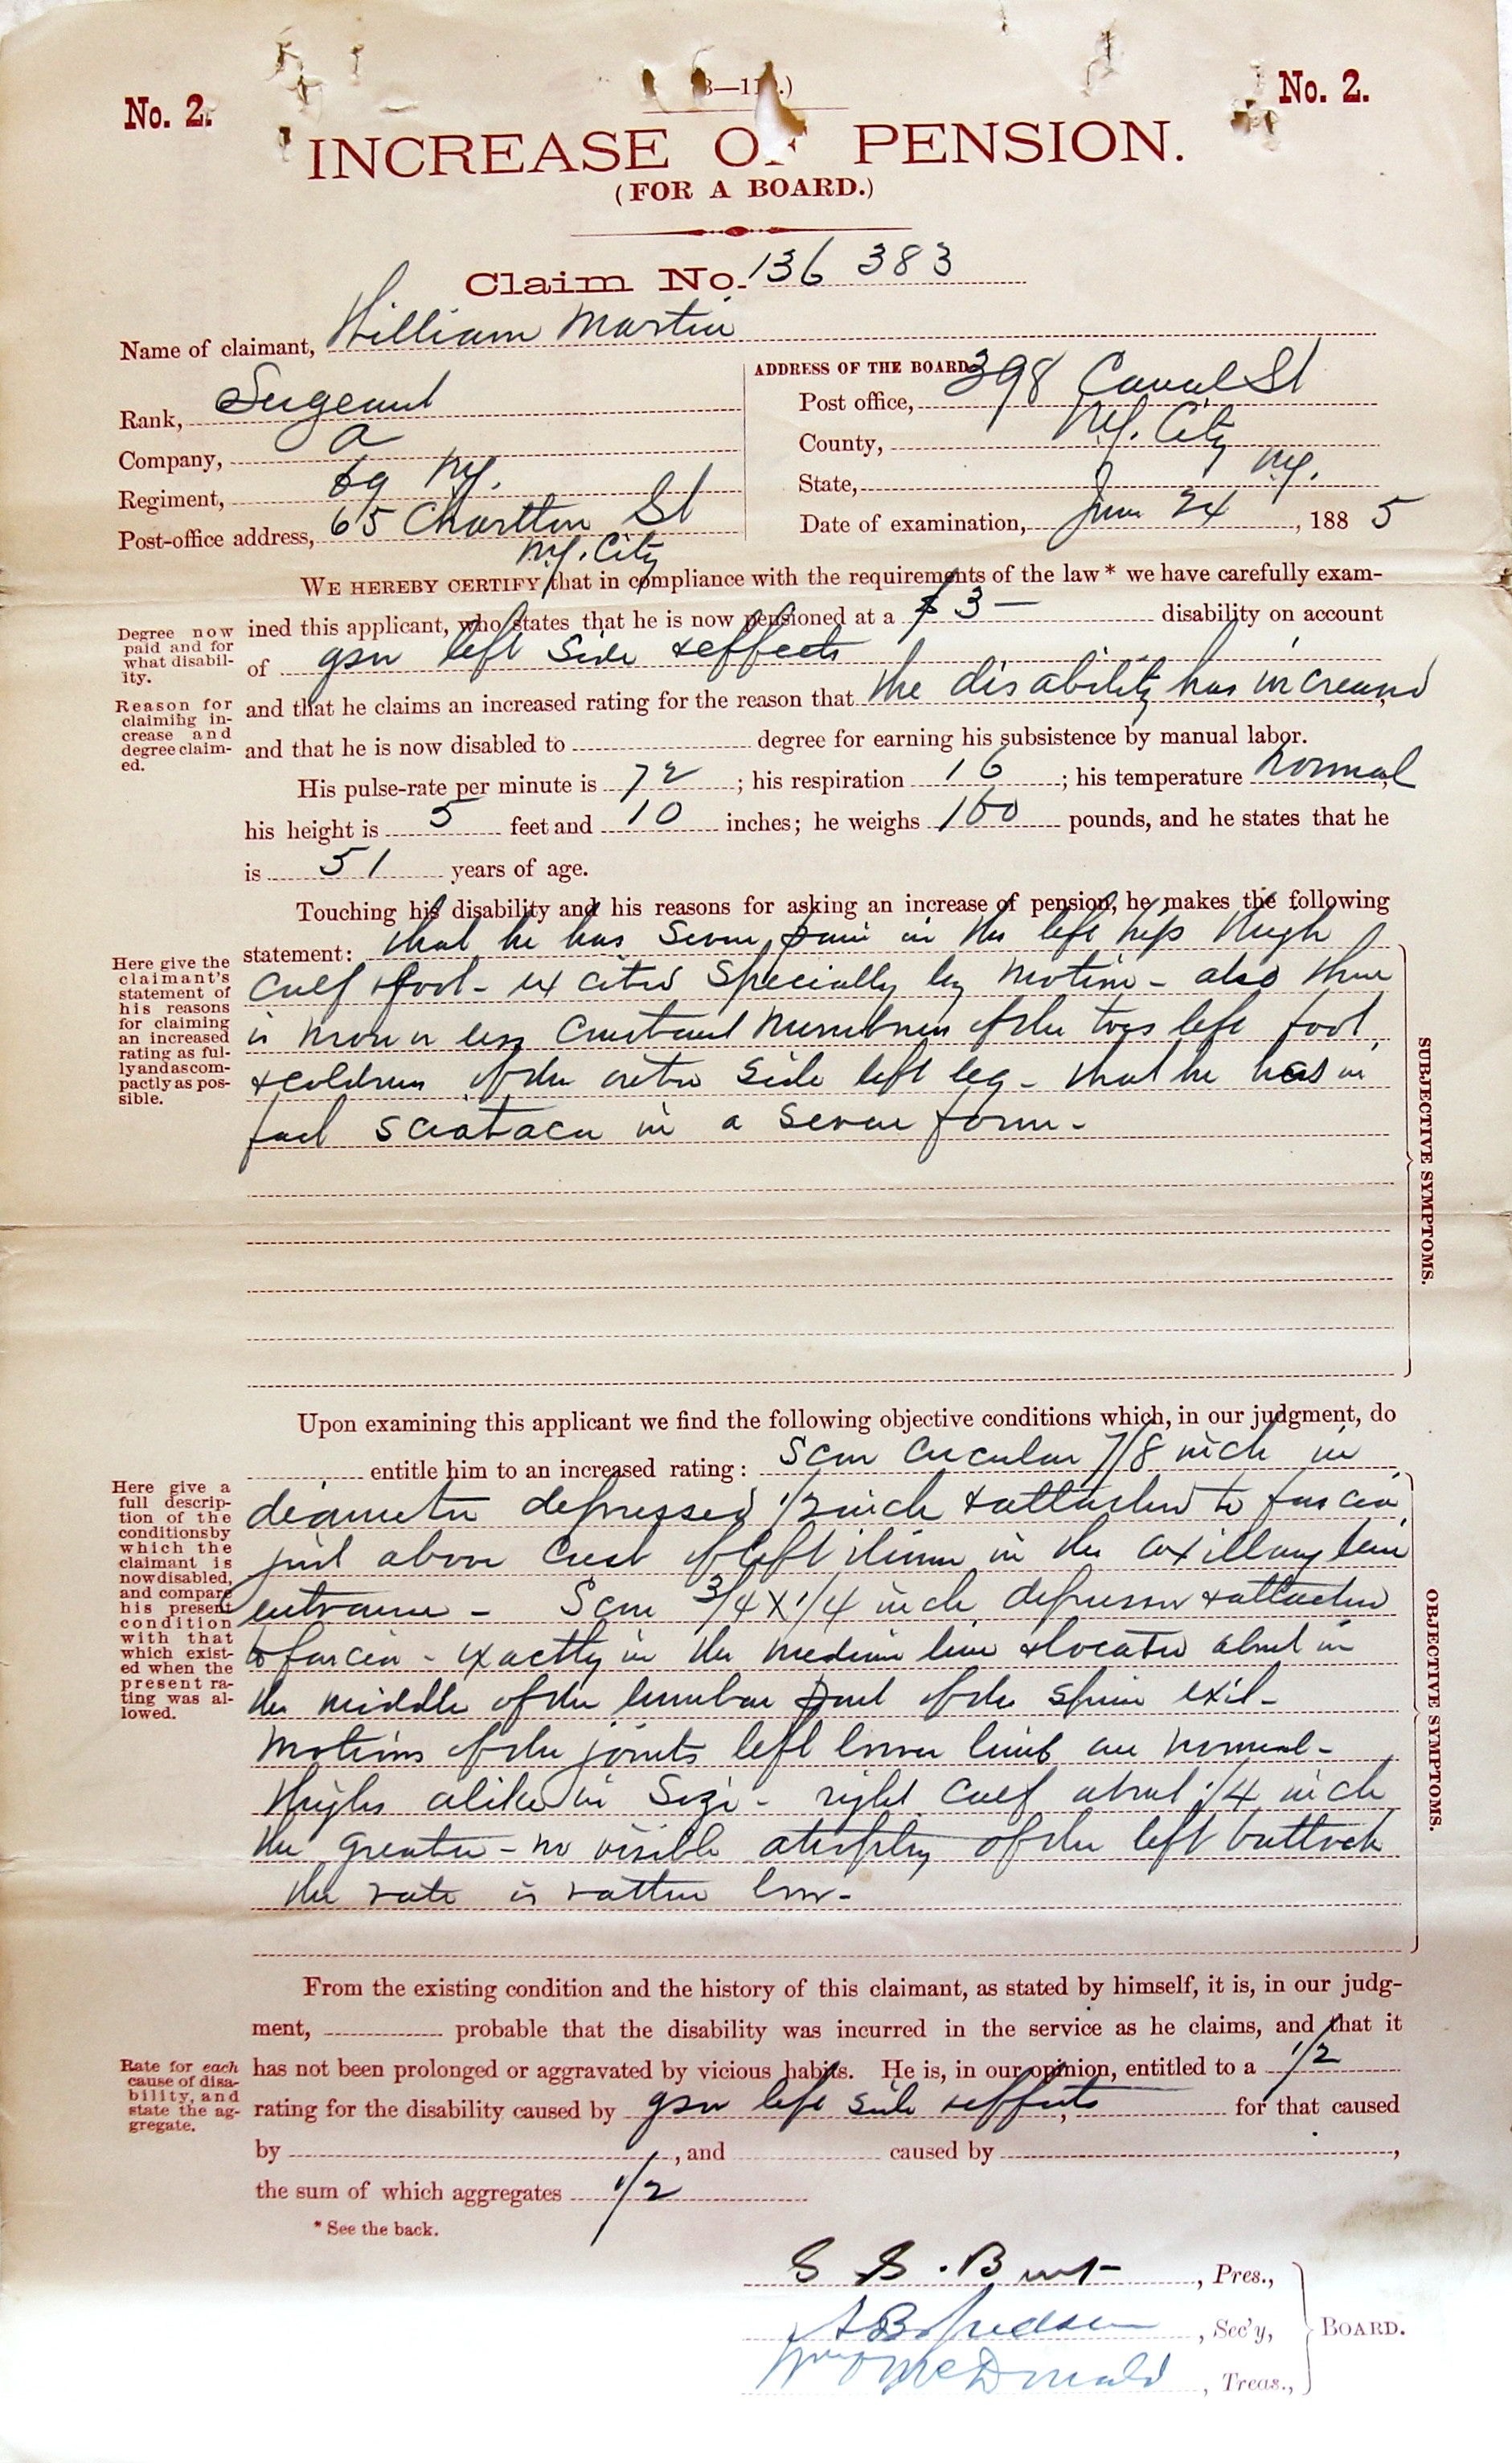 No. 2.
No. 2.
INCREASE OF PENSION.
(FOR A BOARD.)
Claim No. 136 383
Name of claimant, William Martin
Rank, Sergeant
Company, a
Regiment, 69 NY.
Post-office address, 65 Charlton St
NY. City
ADDRESS OF THE BOARD
Post office, 398 Canal St
County, NY. City
State, NY.
Date of examination, June 24, 1885
WE HEREBY CERTIFY that in compliance with the requirements of the law * we have carefully exam-
ined this applicant, who states that he is now pensioned at a $ 3 — disability on account
of gsw left side & effects
and that he claims an increased rating for the reason that the disability has increased,
and that he is now disabled to degree for earning his subsistence by manual labor.
Degree now
paid and for
what disabil-
ity.
Reason for
claiming in-
crease and
degree claim-
ed.
His pulse-rate per minute is 72; his respiration 16; his temperature normal,
his height is 5 feet and 10 inches; he weighs 160 pounds, and he states that he
is 51 years of age.
Touching his disability and his reasons for asking an increase of pension, he makes the following
statement: that he has severe pain in the left hip thigh
calf & foot - excited specially by motion - also there
is more or less constant numbness of the toes left foot
& coldness of the outer side left leg - that he has in
fact sciataca in a severe form -
Here give the
claimant's
statement of
his reasons
for claiming
an increased
rating as ful-
ly and as com-
pactly as pos-
sible.
SUBJECTIVE SYMPTOMS.
Upon examining this applicant we find the following objective conditions which, in our judgment, do
entitle him to an increased rating: Scar circular 7/8 inch in
diameter depressed 1/2 inch & attached to fascia
just above crest of left ilium in the axillary line
entrance - Scar 3/4 X 1/4 inch depressed & attached
to fascia - exactly in the median line & located about in
the middle of the lumbar part of the spine exit -
Motions of the joints left lower limb are normal -
thighs alike in size - right calf about 1/4 inch
the greater - no visible atrophy of the left buttock
the rate is rather low -
Here give a
full descrip-
tion of the
conditions by
which the
claimant is
now disabled,
and compare
his present
condition
with that
which exist-
ed when the
present ra-
ting was al-
lowed.
OBJECTIVE SYMPTOMS.
From the existing condition and the history of this claimant, as stated by himself, it is, in our judg-
ment, probable that the disability was incurred in the service as he claims, and that it
has not been prolonged or aggravated by vicious habits. He is, in our opinion, entitled to a 1/2
rating for the disability caused by gsw left side & effects, for that caused
by , and caused by ,
the sum of which aggregates 1/2
Rate for each
cause of disa-
bility, and
state the ag-
gregate.
* See the back.
S S. Burt, Pres.,
, Sec'y,
McDonald, Treas.,
BOARD.